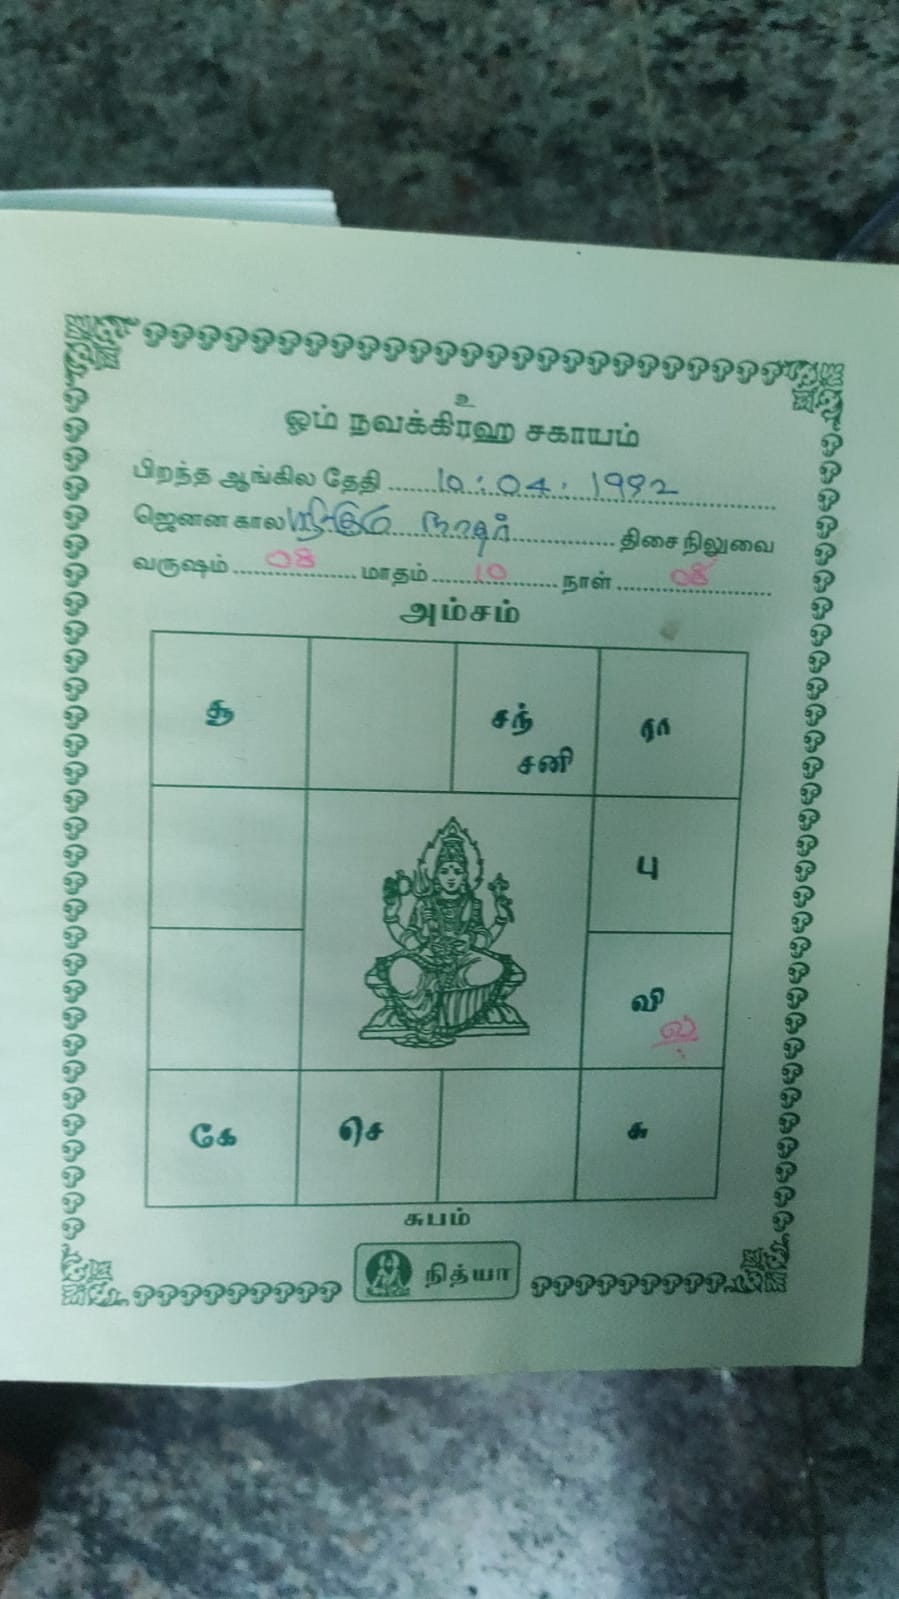 உ
ஓம் நவக்கிரஹ சகாயம்
பிறந்த ஆங்கில தேதி 10.04.1992
ஜெனன கால திசை நிலுவை
வருஷம் 08 மாதம் 10 நாள் 08
அம்சம்
சூ சந் ரா
சனி
பு
வி
ல
கே செ சு
சுபம்
நித்யா